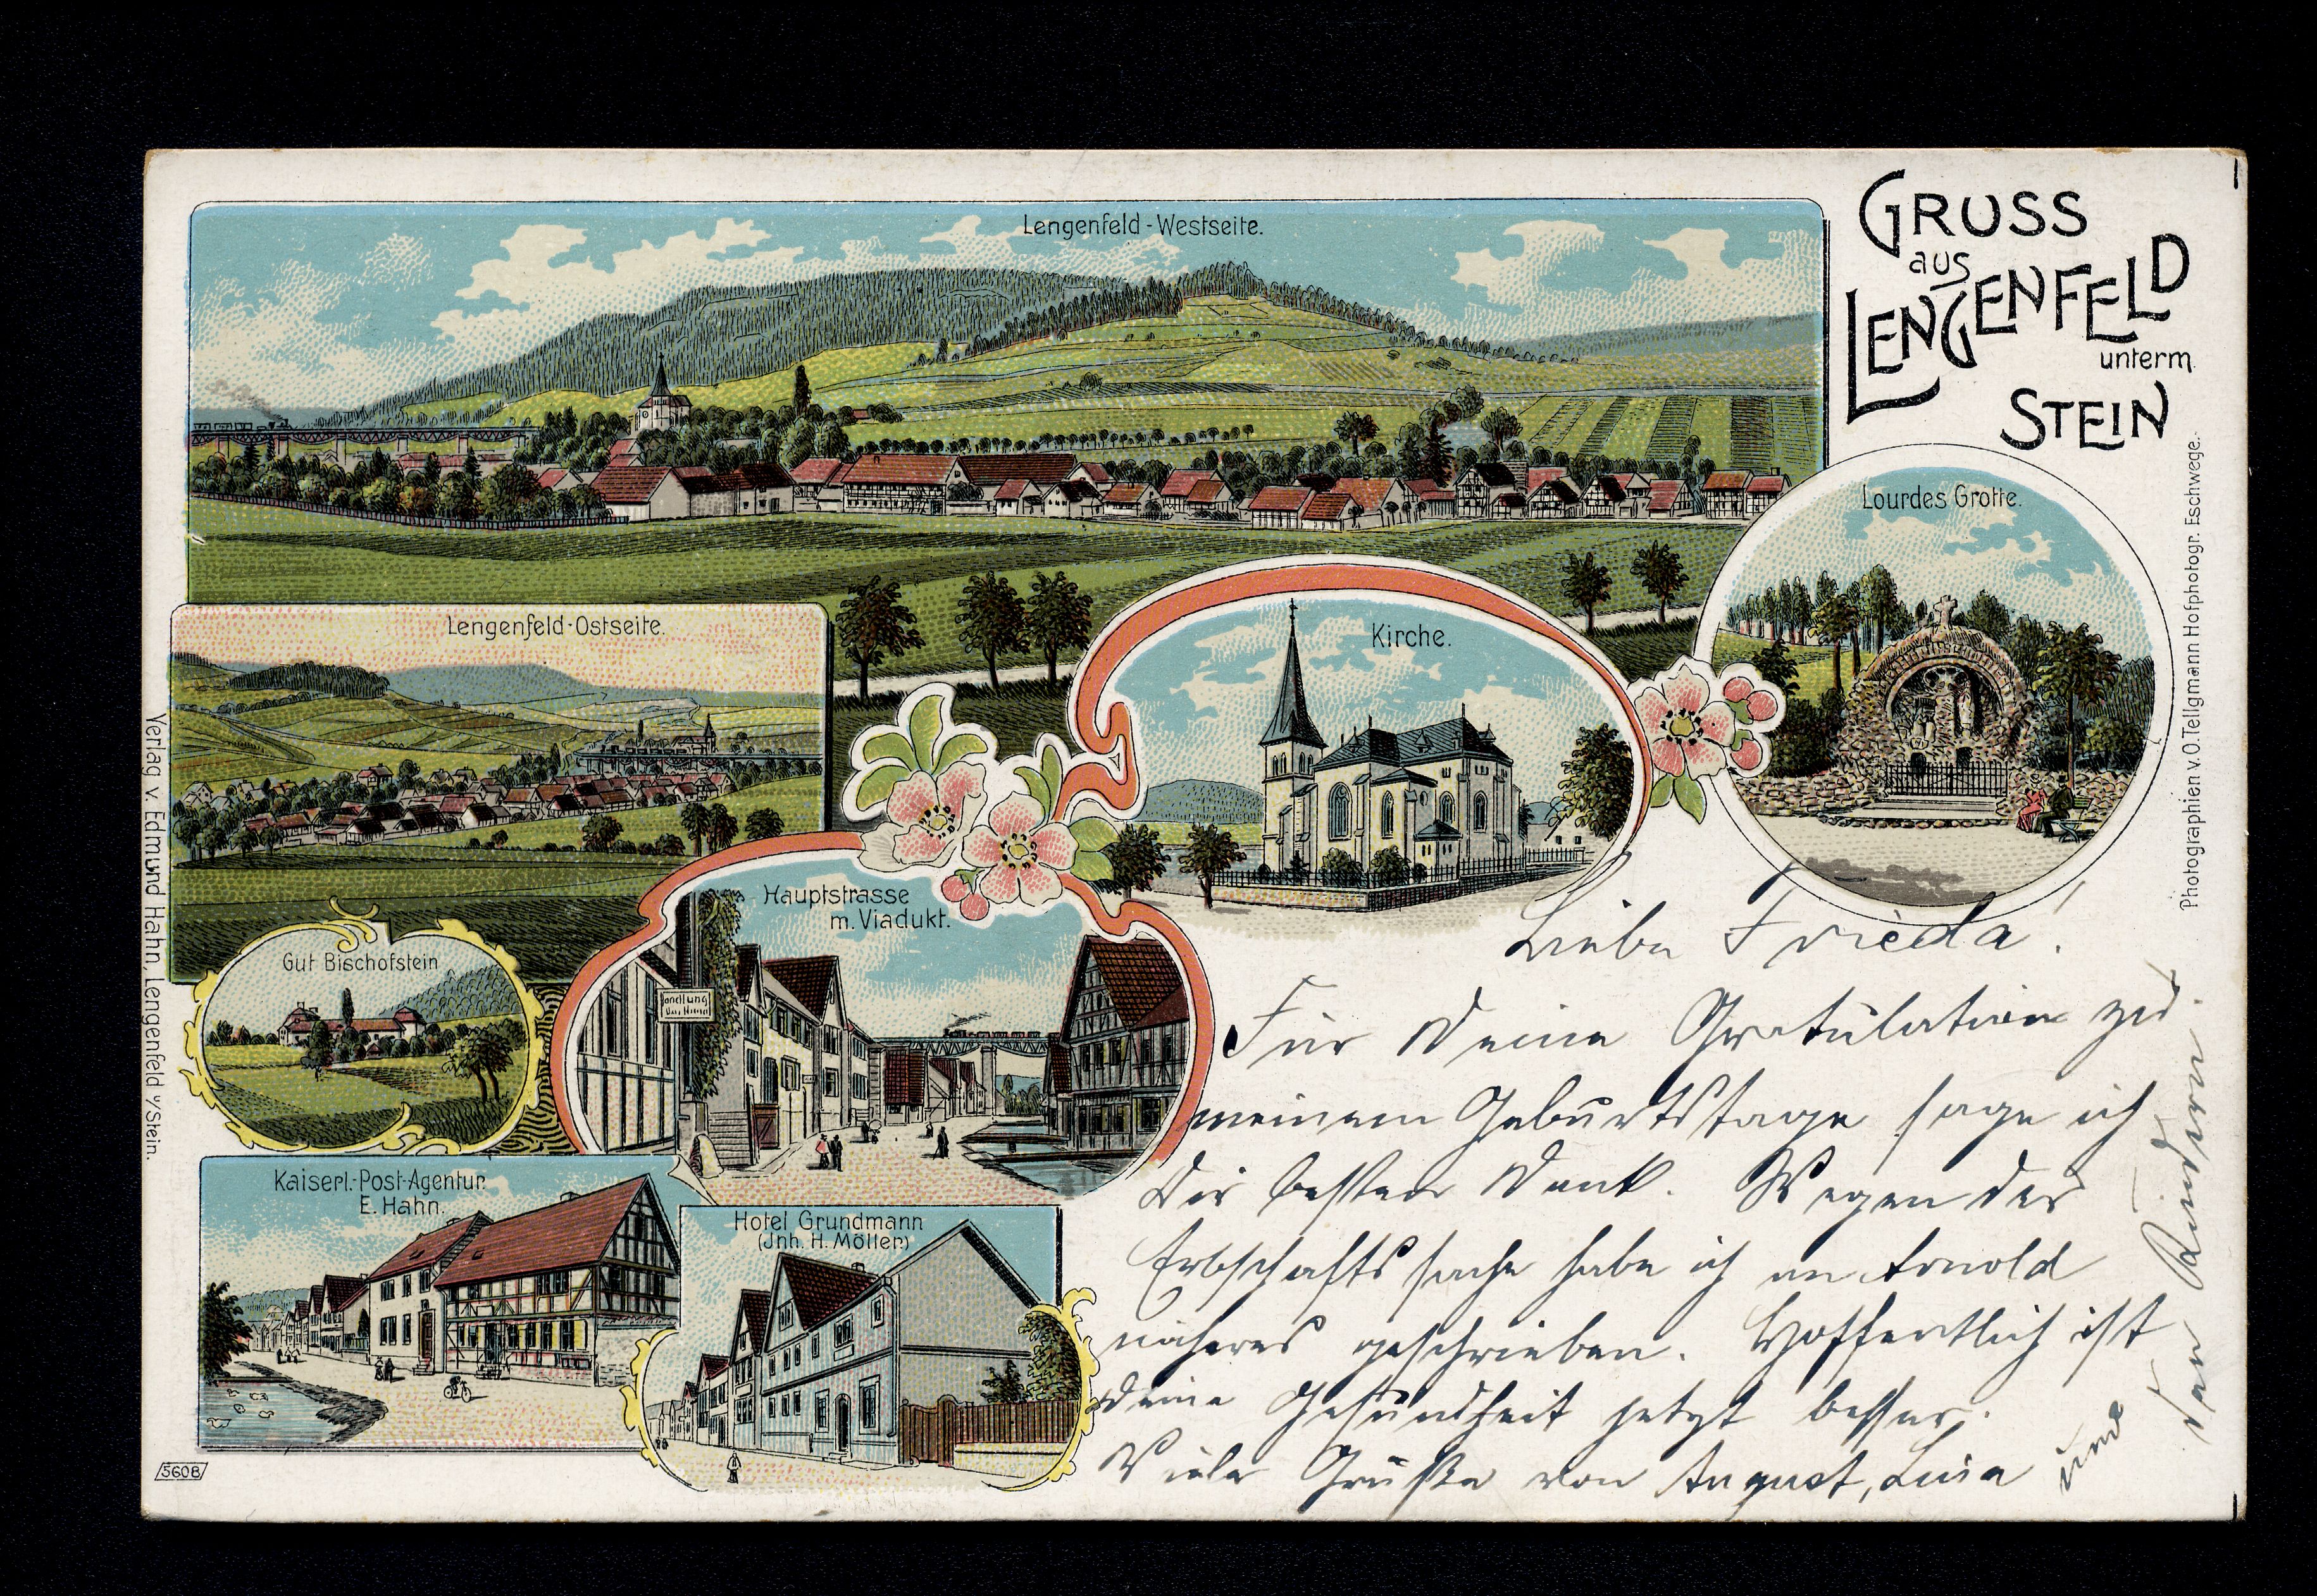 GRUSS
aus
LENGENFELD
unterm
STEIN
Lengenfeld-Westseite.
Lourdes Grotte.
Lengenfeld-Ostseite.
Kirche.
Hauptstrasse
m. Viadukt.
Gut Bischofstein
andlung
Kaiserl.-Post-Agentur
E. Hahn.
Hotel Grundmann
(Jnh. H. Möller)
Verlag v. Edmund Hahn, Lengenfeld u/Stein.
Photographien v. O. Tellgmann Hofphotogr. Eschwege.
5608
Liebe Frieda!
Für Deine Gratulation zu
meinem Geburtstage sage ich
Dir besten Dank. Wegen der
Erbschaftssache habe ich an Arnold
näheres geschrieben. Hoffentlich ist
Deine Gesundheit jetzt besser.
Viele Grüße von August, Luia
und
den Kindern.